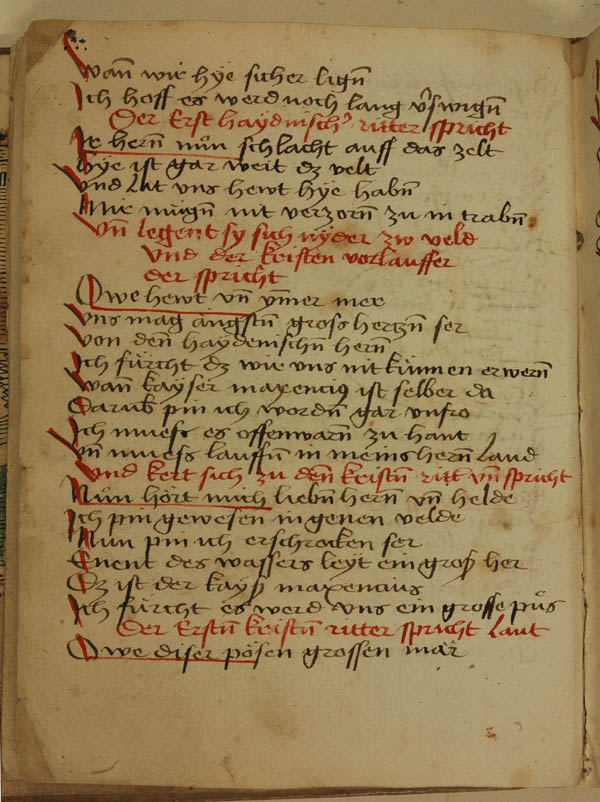 Wan̄ wir hye sicher lign̄
Ich hoff es werd noch lang v̾swign̄
Der Erst haydnisch̾ ritter spricht
Ir hern̄ nuͦn schlacht auff das zelt
hye ist gar weit dz velt
Vnd lat vns hewt hye habn̄
Mir mügn̄ nit verzorn̄ zu in trabn̄
Vn̄ legent sy sich nyder zw veld
Vnd der kristen vorlauffer
der spricht
Owe hewt vn̄ ymer mer
Vns mag angstn̄ gross hertzn̄ ser
Von den̄ haydenischn̄ hern̄
Ich fürcht dz wir vns nit künnen erwern̄
Wan̄ kayser maxencius ist selber da
Darub̄ pin ich wordn̄ gar vnfro
Ich muess es offenwarn̄ zu hant
Vn̄ muess lauffn̄ in meins hern̄ land
Vnd kert sich zu den̄ kristn̄ ritt vn̄ spricht
Nuͦn hört mich liebn̄ hern̄ vn̄ helde
Ich pin gewesen in genen velde
Nun pin ich erschrocken ser
Enent des wassers leyt ein gross her
Dz ist der kays̾ maxencius
Ich fürcht es werd vns ein grosse puͦs
Der Erstn̄ kristn̄ ritter spricht laut
Owe diser pösen grossen mär